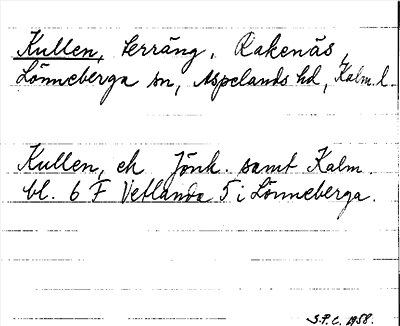 Kullen, terräng, Rakenäs,
Lönneberga sn, Aspelands hd, Kalm. l.
Kullen, ek Jönk. samt Kalm.
bl. 6 F Vetlanda 5 i Lönneberga.
S.P.C. 1958.